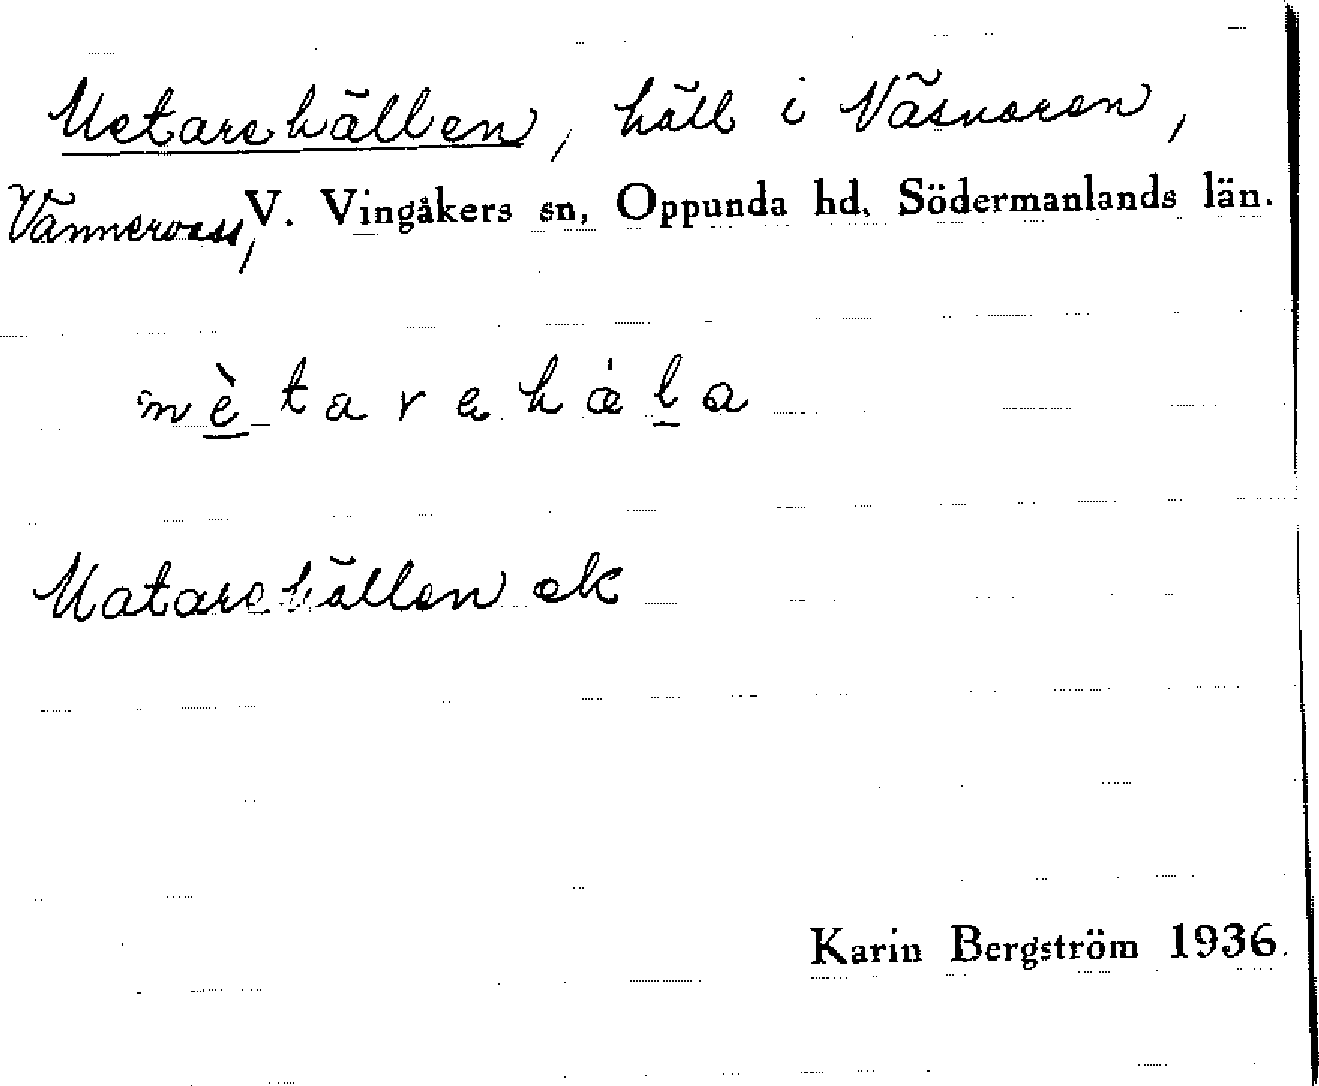 Metarehällen, häll i Näsnaren,
Vännevass, V. Vingåkers sn, Oppunda hd, Södermanlands län.
mètarehäla
Matarehällen ek
Karin Bergström 1936.